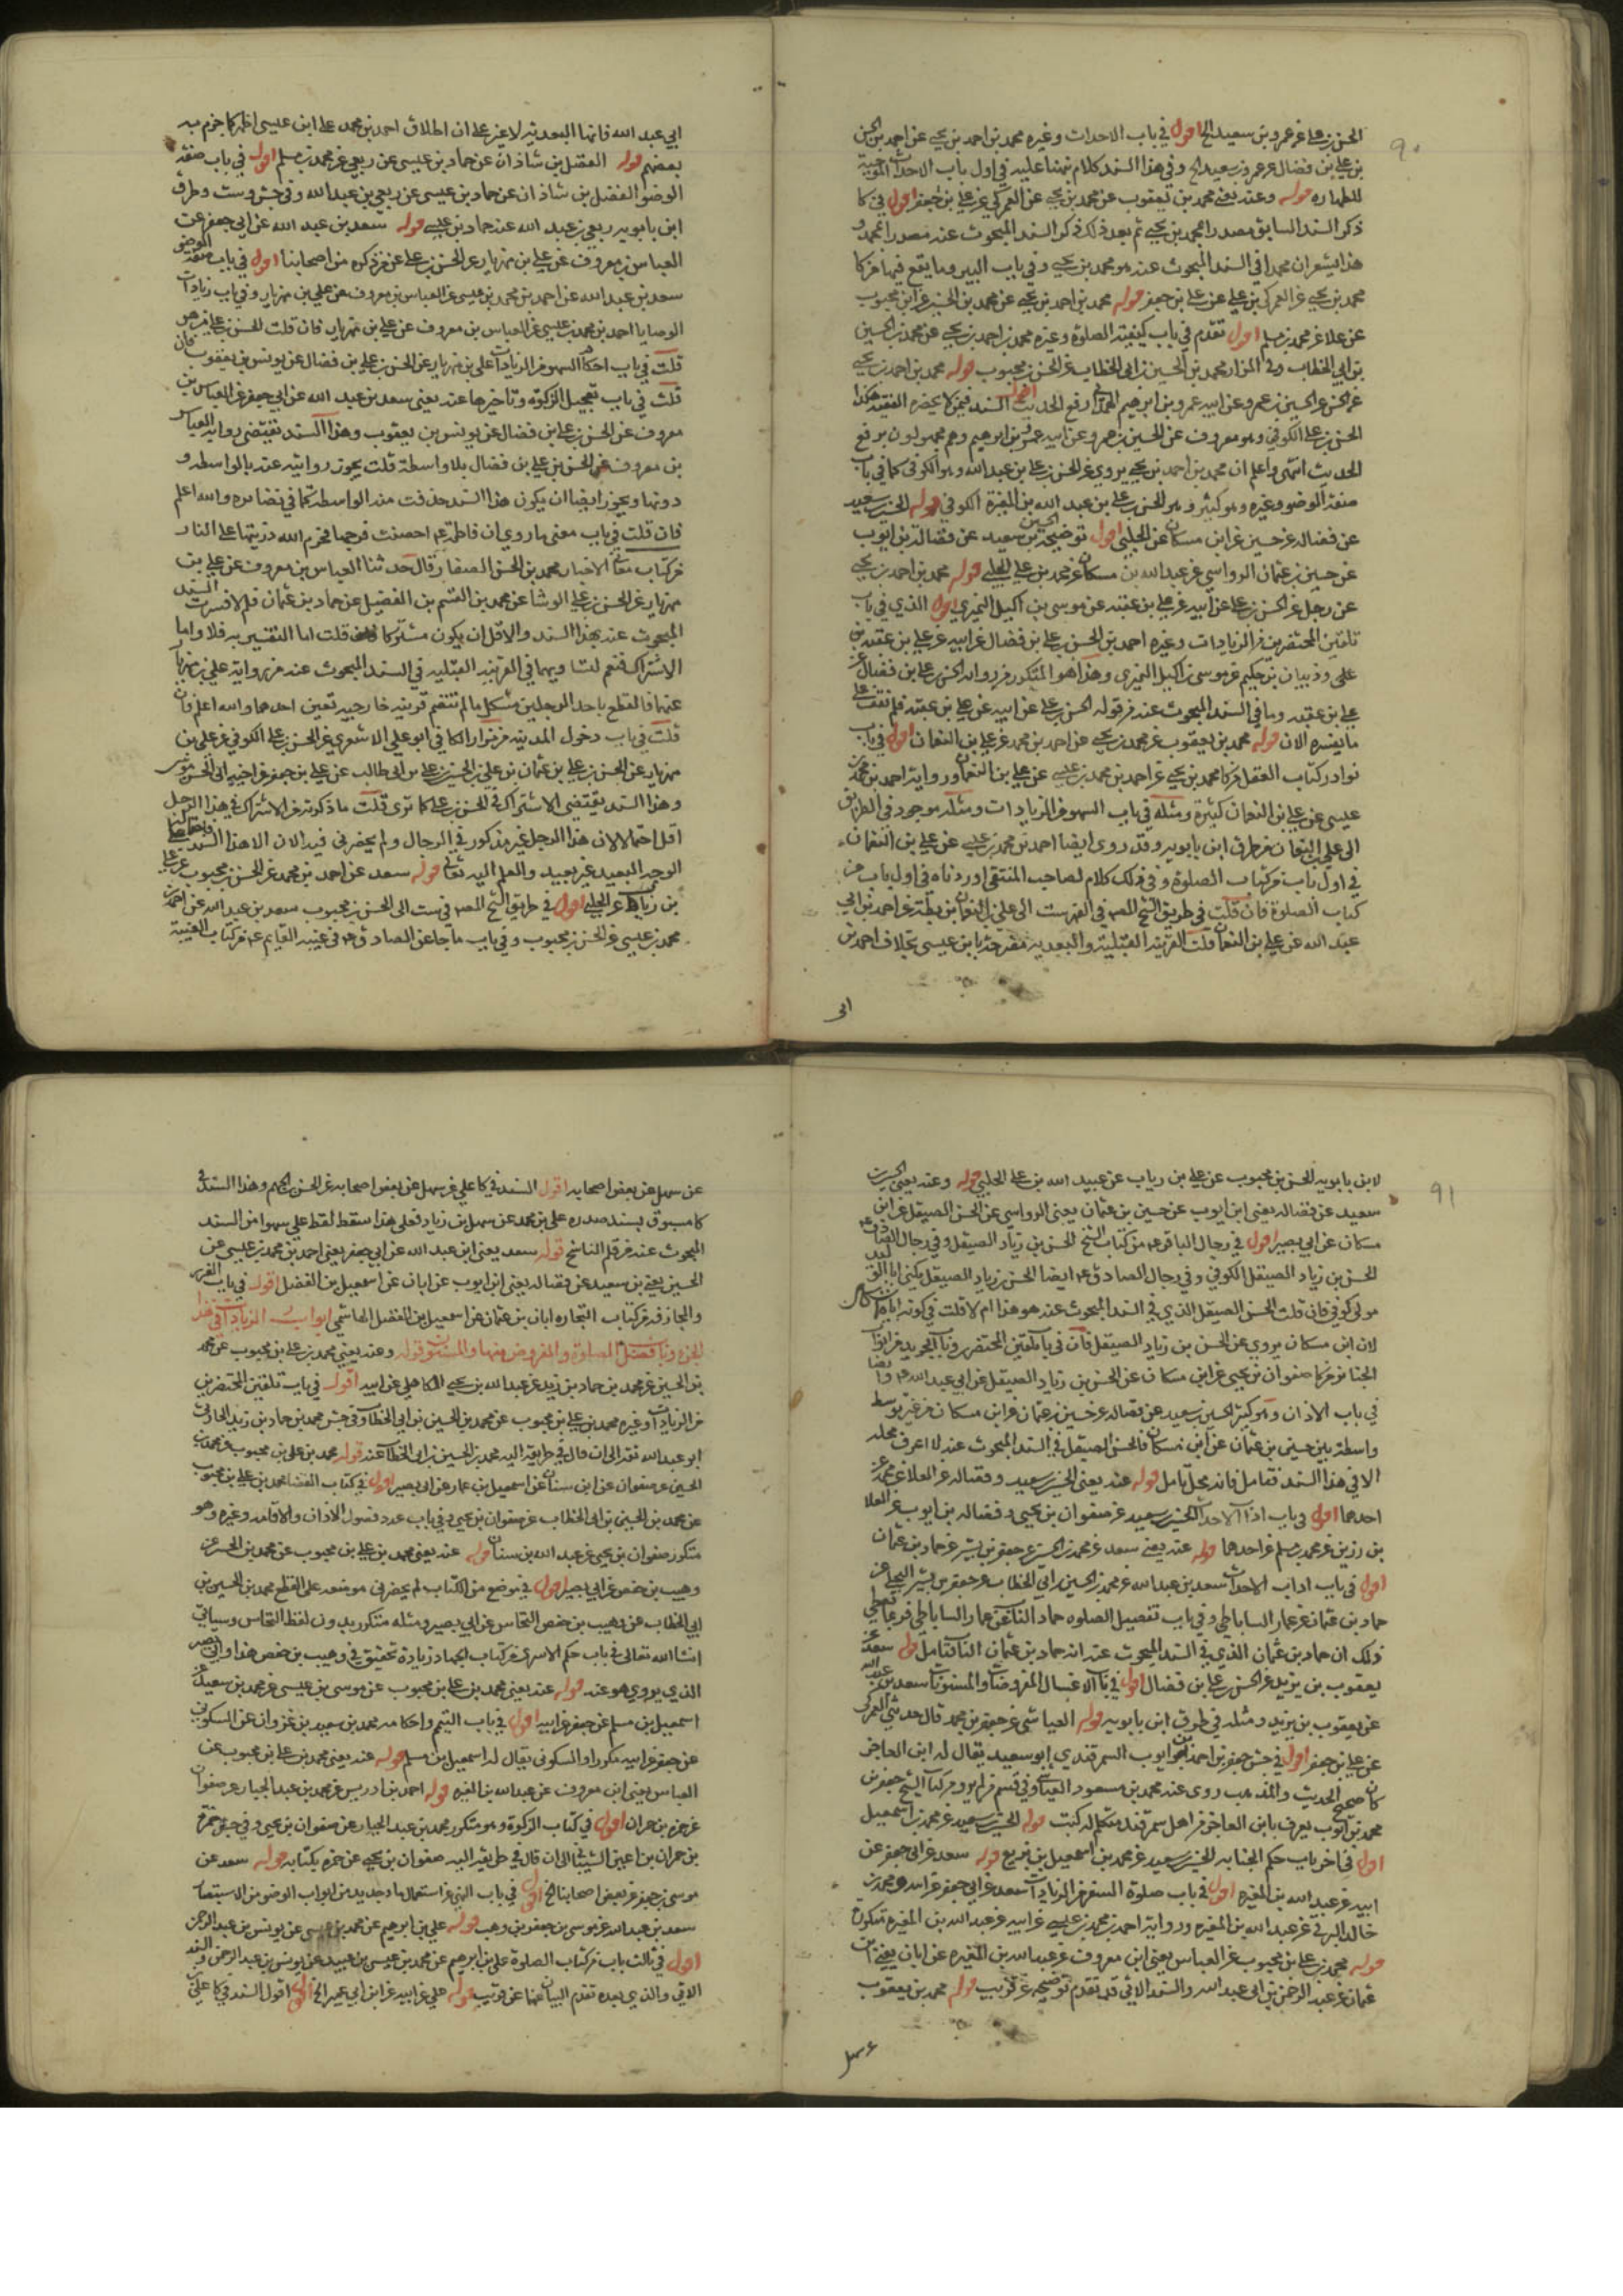 ٩٠
الحسن بن علي عن عمرو بن سعيد الخ اقول في باب الاحداث وغيره محمد بن احمد بن يحيى عن احمد بن الحسن
بن علي بن فضال عن عمرو بن سعيد الخ وفي هذا السند كلام نبهنا عليه في اول باب الاحداث الموجبة
للطهاره قوله وعنه يعني محمد بن يعقوب عن محمد بن يحيى عن العمركي عن علي بن جعفر اقول في كا
ذكر السند السابق مصدرا بمحمد بن يحيى ثم بعد ذلك ذكر السند المبحوث عنه مصدرا بمحمد و
هذا يشعر ان محمدا في السند المبحوث عنه هو محمد بن يحيى وفي باب البير وما يقع فيها من كا
محمد بن يحيى عن العمركي بن علي عن علي بن جعفر قوله محمد بن احمد بن يحيى عن محمد بن الحسين عن ابن محبوب
عن علا عن محمد بن مسلم اقول تقدم في باب كيفية الصلوة وغيره محمد بن احمد بن يحيى عن محمد بن الحسين
بن ابي الخطاب وفي المزار محمد بن الحسين بن ابي الخطاب عن الحسن بن محبوب قوله محمد بن احمد بن يحيى
الحسن بن علي الكوفي وهو معروف عن الحسين بن عمرو عن ابيه عمرو بن ابراهيم وهم مجهولون يرفع
الحديث انتهى واعلم ان محمد بن احمد بن يحيى يروي عن الحسن بن علي بن عبد الله وهو الكوفي كما في باب
صفة الوضوء وغيره وهو كثير وهو الحسن بن علي بن عبد الله بن المغيرة الكوفي قوله الحسين بن سعيد
عن فضاله عن حسين عن ابن مسكان عن الحلبي اقول توضيحه الحسين بن سعيد عن فضالة بن ايوب
عن حسين بن عثمان الرواسي عن عبد الله بن مسكان عن محمد بن علي الحلبي قوله محمد بن احمد بن يحيى
عن رجل عن الحسن بن علي عن ابيه عن علي بن عقبه عن موسى بن اكيل النميري اقول الذي في باب
تلقين المحتضرين من الزيادات وغيره احمد بن الحسن بن علي بن فضال عن ابيه عن علي بن عقبة بن
علي وذبيان بن حكيم عن موسى بن اكيل النميري وهذا هو المتكرر من رواية الحسن بن علي بن فضال عن
علي بن عقبه وما في السند المبحوث عنه من قوله الحسن بن علي عن ابيه عن علي بن عقبه فلم نقف على
ما يفسره الان قوله محمد بن يعقوب عن محمد بن يحيى عن احمد بن محمد عن علي بن النعمان اقول في باب
نوادر كتاب العقل من كا محمد بن يحيى عن احمد بن محمد بن عيسى عن علي بن النعمان ورواية احمد بن محمد بن
عيسى عن علي بن النعمان كثيرة ومثله في باب السهو من الزيادات ومثله موجود في الطريق
الى علي بن النعمان من طرق ابن بابويه وقد روى ايضا احمد بن محمد بن عيسى عن علي بن النعمان
في اول باب من كتاب الصلوة وفي ذلك كلام لصاحب المنتقى اوردناه في اول باب من
كتاب الصلوة فان قلت في طريق الشيخ المص في الفهرست الى علي بن النعمان بن بطة عن احمد بن ابي
عبد الله عن علي بن النعمان قلت القرينه القبلية والبعديه مصرحة بابن عيسى بخلاف احمد بن
ابي
ابي عبد الله فانها البعديه لا غير على ان اطلاق احمد بن محمد على ابن عيسى اظهر كما جزم به
بعضهم قوله الفضل بن شاذان عن حماد بن عيسى عن ربعي عن محمد بن مسلم اقول في باب صفة
الوضوء الفضل بن شاذان عن حماد بن عيسى عن ربعي بن عبد الله وفي جش وست وطرق
ابن بابويه ربعي بن عبد الله عنه حماد بن عيسى قوله سعد بن عبد الله عن ابي جعفر عن
العباس بن معروف عن علي بن مهزيار عن الحسن بن علي عمن ذكره من اصحابنا اقول في باب صفة الوضوء
سعد بن عبد الله عن احمد بن محمد بن عيسى عن العباس بن معروف عن علي بن مهزيار وفي باب زيادات
الوصايا احمد بن محمد بن عيسى عن العباس بن معروف عن علي بن مهزيار فان قلت الحسن بن علي من هو
قلت في باب احكام السهو من الزيادات علي بن مهزيار عن الحسن بن علي بن فضال عن يونس بن يعقوب فان
قلت في باب تعجيل الزكوة وتاخيرها عنه يعني سعد بن عبد الله عن ابي جعفر عن العباس بن
معروف عن الحسن بن علي بن فضال عن يونس بن يعقوب وهذا السند يقتضي رواية العباس
بن معروف عن الحسن بن علي بن فضال بلا واسطة قلت يجوز روايته عنه بالواسطه و
دونها ويجوز ايضا ان يكون هذا السند حذفت منه الواسطه كما في نضائره والله اعلم
فان قلت في باب معنى ما روي ان فاطمة ع احصنت فرجها فحرم الله ذريتها على النار
من كتاب معاني الاخبار محمد بن الحسن الصفار قال حدثنا العباس بن معروف عن علي بن
مهزيار عن الحسن بن علي الوشا عن محمد بن القسم بن الفضيل عن حماد بن عثمان فلم لا فسرت السند
المبحوث عنه بهذا السند والاقل ان يكون مشتركا قلت اما التفسير به فلا واما
الاشتراك فنعم لتساويهما في القرينه القبليه في السند المبحوث عنه من رواية علي بن مهزيار
عنهما فالقطع باحد الرجلين مشكل ما لم تنضم قرينه خارجيه تعين احدهما والله اعلم فان
قلت في باب دخول المدينه من مزار الكافي ابو علي الاشعري عن الحسن بن علي الكوفي عن علي بن
مهزيار عن الحسن بن علي بن عثمان بن علي بن الحسين بن علي بن ابي طالب عن علي بن جعفر عن اخيه ابي الحسن موسى
وهذا السند يقتضي الاشتراك في الحسن بن علي كما ترى قلت ما ذكرته من الاشتراك في هذا الرجل
اقل احتمالا لان هذا الرجل غير مذكور في الرجال ولم يحضرني فيه الان الا هذا السند
الوجه البعيد غير بعيد والعلم اليه تعالى قوله سعد عن احمد بن محمد عن الحسن بن محبوب عن علي
بن رياب عن الحلبي اقول في طريق الشيخ المص في ست الى الحسن بن محبوب سعد بن عبد الله عن احمد بن
محمد بن عيسى عن الحسن بن محبوب وفي باب ما جا عن الصادق ع في غيبة القايم ع من كتاب الغيبة
٩١
لابن بابويه الحسن بن محبوب عن علي بن رياب عن عبيد الله بن علي الحلبي قوله وعنه يعني الحسين بن
سعيد عن فضاله يعني ابن ايوب عن حسين بن عثمان يعني الرواسي عن الحسن الصيقل عن ابن
مسكان عن ابي بصير اقول في رجال الباقر ع من كتاب الشيخ الحسن بن زياد الصيقل وفي رجال الصادق ع
الحسن بن زياد الصيقل الكوفي وفي رجال الصادق ع ايضا الحسن بن زياد الصيقل يكنى ابا الوليد
مولى كوفي فان قلت الحسن الصيقل الذي في السند المبحوث عنه هو هذا ام لا قلت في كونه اياه
لان ابن مسكان يروي عن الحسن بن زياد الصيقل فان في باب تلقين المحتضر
الجنايز من كا صفوان بن يحيى عن ابن مسكان عن الحسن بن زياد الصيقل عن ابي عبد الله ع وايضا
في باب الاذان وهو كثير الحسين بن سعيد عن فضاله عن حسين بن عثمان عن ابن مسكان من غير توسط
واسطة بين حسين بن عثمان عن ابن مسكان فالحسن الصيقل في السند المبحوث عنه لا اعرف محله
الا في هذا السند فتامل فانه محل تامل قوله عنه يعني الحسين بن سعيد وفضاله عن العلا عن محمد عن
احدهما اقول في باب الحسين بن سعيد عن صفوان بن يحيى وفضاله بن ايوب عن العلا
بن رزين عن محمد بن مسلم عن احدهما قوله عنه يعني سعد عن محمد بن الحسين عن جعفر بن بشير عن حماد بن عثمان
اقول في باب اداب الاحداث سعد بن عبد الله عن محمد بن الحسين بن ابي الخطاب عن جعفر بن بشير البجلي عن
حماد بن عثمان عن عمار الساباطي وفي باب تفصيل الصلوه حماد الناب عن عمار الساباطي
ذلك ان حماد بن عثمان الذي في السند المبحوث عنه انه حماد بن عثمان الناب فتامل قوله سعد عن
يعقوب بن يزيد عن الحسن بن علي بن فضال اقول في باب الاغسال المفروضات والمسنونات سعد بن عبد الله
عن يعقوب بن يزيد ومثله في طرق ابن بابويه قوله العياشي عن جعفر بن محمد قال حدثني العمركي
عن علي بن جعفر اقول في جش جعفر بن احمد بن ايوب السمرقندي ابو سعيد يقال له ابن العاجز
كان صحيح الحديث والمذهب روى عنه محمد بن مسعود العياشي وفي قسم من لم يرو من كتاب الشيخ جعفر بن
محمد بن ايوب يعرف بابن العاجز من اهل سمرقند متكلم له كتب قوله الحسين بن سعيد عن محمد بن اسمعيل
اقول في اخر باب حكم الجنابه الحسين بن سعيد عن محمد بن اسمعيل بن بزيع قوله سعد عن ابي جعفر عن
ابيه عن عبد الله بن المغيره اقول في باب صلوة السفر من الزيادات سعد عن ابي جعفر عن ابيه ومحمد بن
خالد البرقي عن عبد الله بن المغيره ورواية احمد بن محمد بن عيسى عن ابيه عن عبد الله بن المغيره متكررة
قوله محمد بن علي بن محبوب عن العباس يعني ابن معروف عن عبد الله بن المغيره عن ابان يعني ابن
عثمان عن عبد الرحمن بن ابي عبد الله والسند الاتي قد تقدم توضيحه عن قريب قوله محمد بن يعقوب
عن سهل
عن سهل عن بعض اصحابه اقول السند في كا علي عن سهل عن بعض اصحابه عن الحسن بن الجهم وهذا السند في
كا مسبوق بسند صدره علي بن محمد عن سهل بن زياد فعلى هذا سقط لفظ علي سهوا من السند
المبحوث عنه من قلم الناسخ قوله سعد يعني ابن عبد الله عن ابي جعفر يعني احمد بن محمد بن عيسى عن
الحسين يعني بن سعيد عن فضاله يعني ابن ايوب عن ابان عن اسمعيل بن الفضل اقول في باب الغرر
والمجازفه من كتاب التجاره ابان بن عثمان عن اسمعيل بن الفضل الهاشمي ابواب الزيادات في هذا
الجزء باب فضل الصلوة والمفروض منها والمسنون قوله وعنه يعني محمد بن علي بن محبوب عن محمد
بن الحسين عن محمد بن حماد بن زيد عن عبد الله بن يحيى الكاهلي عن ابيه اقول في باب تلقين المحتضرين
من الزيادات وغيره محمد بن علي بن محبوب عن محمد بن الحسين بن ابي الخطاب وفي جش محمد بن حماد بن زيد الحارثي
ابو عبد الله ثقه الى ان قال في طريقه اليه محمد بن الحسين بن ابي الخطاب عنه قوله محمد بن علي بن محبوب عن محمد بن
الحسين عن صفوان عن ابن سنان عن اسمعيل بن عمار عن ابي بصير اقول في كتاب القضا محمد بن علي بن محبوب
عن محمد بن الحسين بن ابي الخطاب عن صفوان بن يحيى وفي باب عدد فصول الاذان والاقامه وغيره وهو
متكرر صفوان بن يحيى عن عبد الله بن سنان قوله عنه يعني محمد بن علي بن محبوب عن محمد بن الحسين عن
وهيب بن حفص عن ابي بصير اقول في موضع من الكتاب لم يحضرني موضعه على القطع محمد بن الحسين بن
ابي الخطاب عن وهيب بن حفص النحاس عن ابي بصير ومثله متكرر بدون لفظ النحاس وسياتي
انشا الله تعالى في باب حكم الاسرى من كتاب الجهاد زيادة تحقيق في وهيب بن حفص هذا وابي بصير
الذي يروي هو عنه قوله عنه يعني محمد بن علي بن محبوب عن موسى بن عيسى عن محمد بن سعيد عن
اسمعيل بن مسلم عن جعفر عن ابيه اقول في باب التيمم واحكامه محمد بن سعيد بن غزوان عن السكوني
عن جعفر عن ابيه مكررا والسكوني يقال له اسمعيل بن مسلم قوله عنه يعني محمد بن علي بن محبوب عن
العباس يعني ابن معروف عن عبد الله بن المغيره قوله احمد بن ادريس عن محمد بن عبد الجبار عن صفوان
عن حمزه بن حمران اقول في كتاب الزكوة وهو متكرر محمد بن عبد الجبار عن صفوان بن يحيى وفي جش حمزة
بن حمران بن اعين الشيباني الى ان قال في طريقه اليه صفوان بن يحيى عن حمزه بكتابه قوله سعد عن
موسى بن جعفر عن بعض اصحابنا الخ اقول في باب
سعد بن عبد الله عن موسى بن جعفر بن وهب قوله علي بن ابراهيم عن محمد بن عيسى عن يونس بن عبد الرحمن
اقول في ثالث باب من كتاب الصلوة علي بن ابراهيم عن محمد بن عيسى بن عبيد عن يونس بن عبد الرحمن والسند
الاتي والذي بعده تقدم البيان عنهما عن قريب قوله علي عن ابيه عن ابن ابي عمير الخ اقول السند في كا علي بن